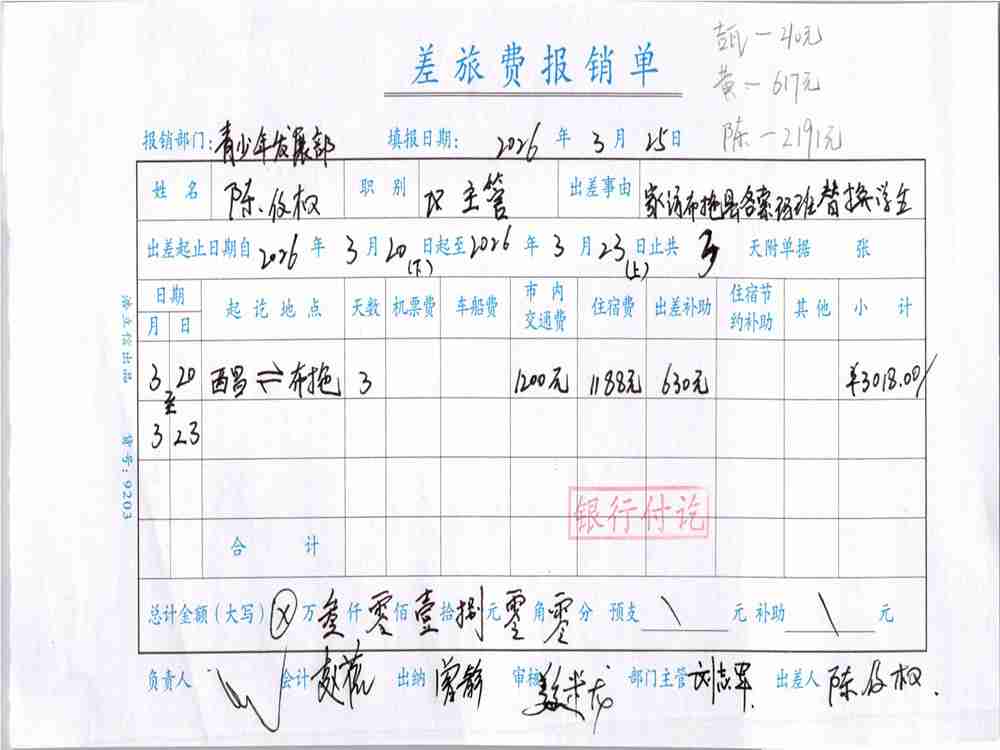 差旅费报销单
一40元
黄 一 617元
陈 一 2191元
报销部门：青少年发展部 填报日期： 2026 年 3 月 25 日
姓 名 陈 权 职 别 主管 出差事由 家访布拖县各 班替换学生
出差起止日期自 2026 年 3 月 20 日起至 2026 年 3 月 23 日止共 3 天附单据 张
(下) (上)
日期 起讫地点 天数 机票费 车船费 市内交通费 住宿费 出差补助 住宿节约补助 其他 小 计
月 日
3 20 西昌⇌布拖 3 1200元 1188元 630元 ¥3018.00/
至
3 23
银行付讫
合 计
总计金额（大写）ⓧ 万 叁 仟 零 佰 壹 拾 捌 元 零 角 零 分 预支 \ 元 补助 \ 元
负责人 会计 赵 出纳 曾静 审核 部门主管 刘志军 出差人 陈 权.
货号：9203